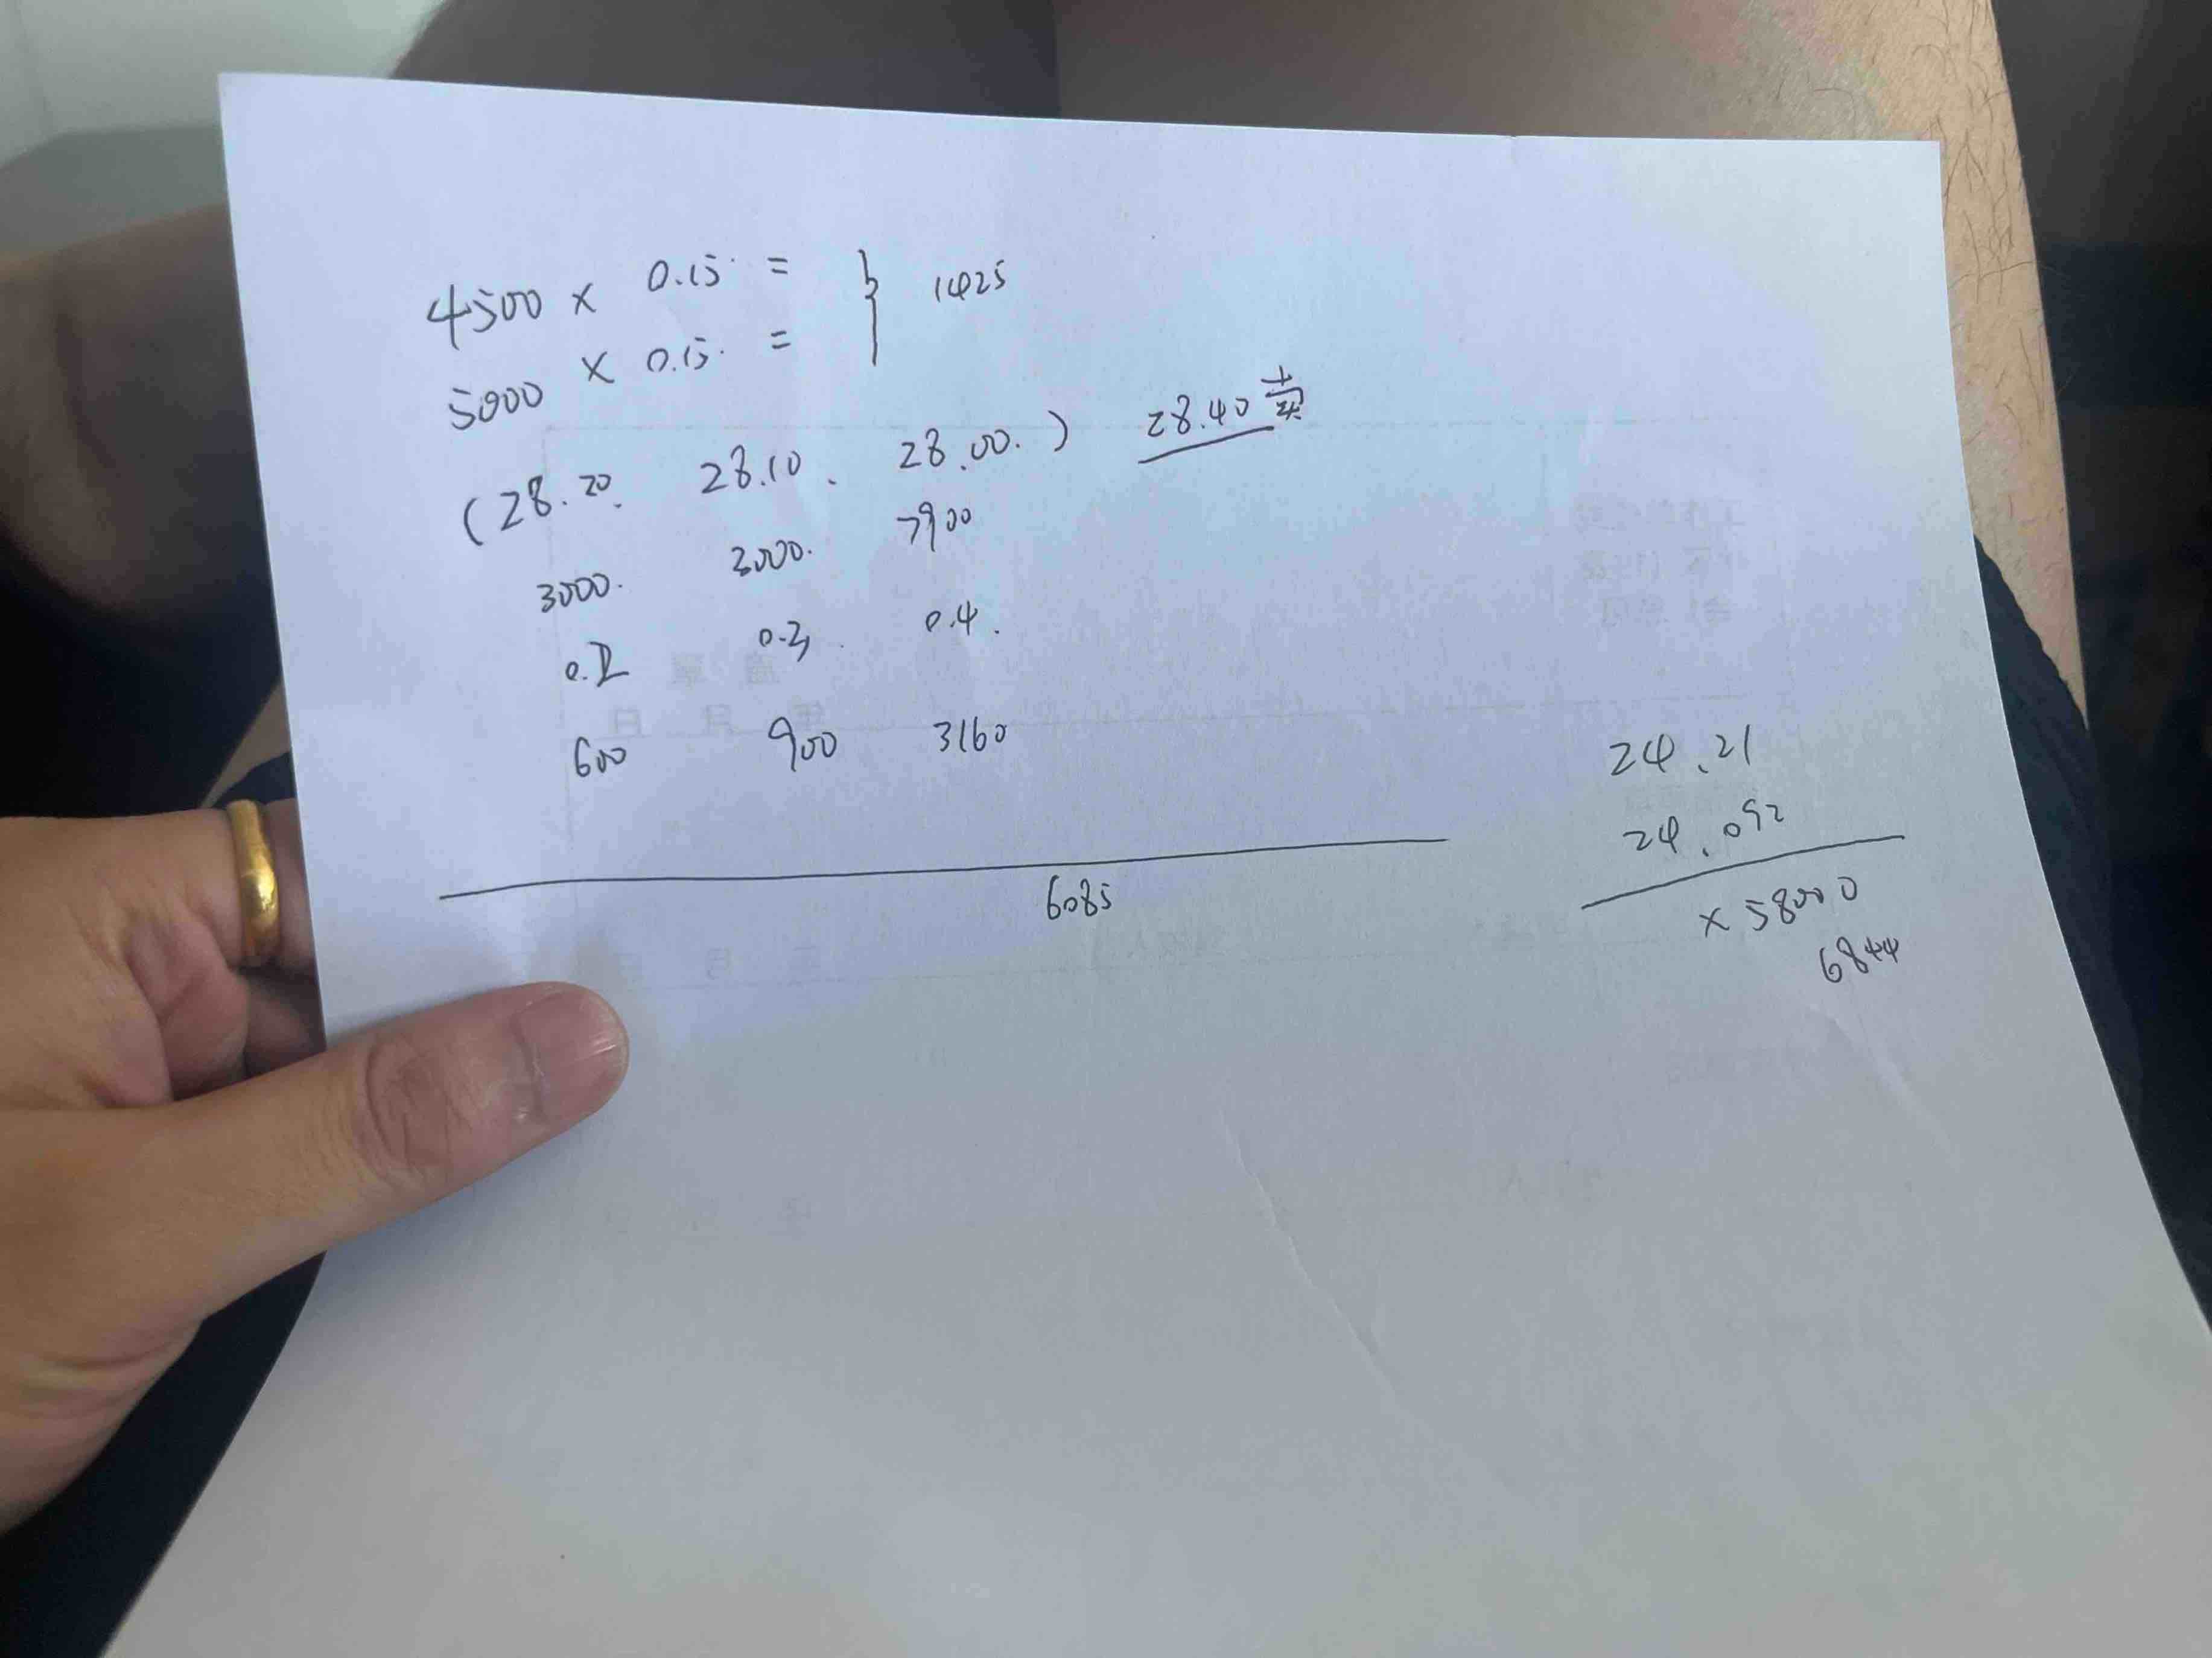 4500 × 0.15 = } 1425
5000 × 0.15 =
(28.20、 28.10、 28.00.) 28.40卖
3000. 3000. 7900
0.2 0.3 0.4.
600 900 3160
6085
24.21
24.092
× 58000
6844